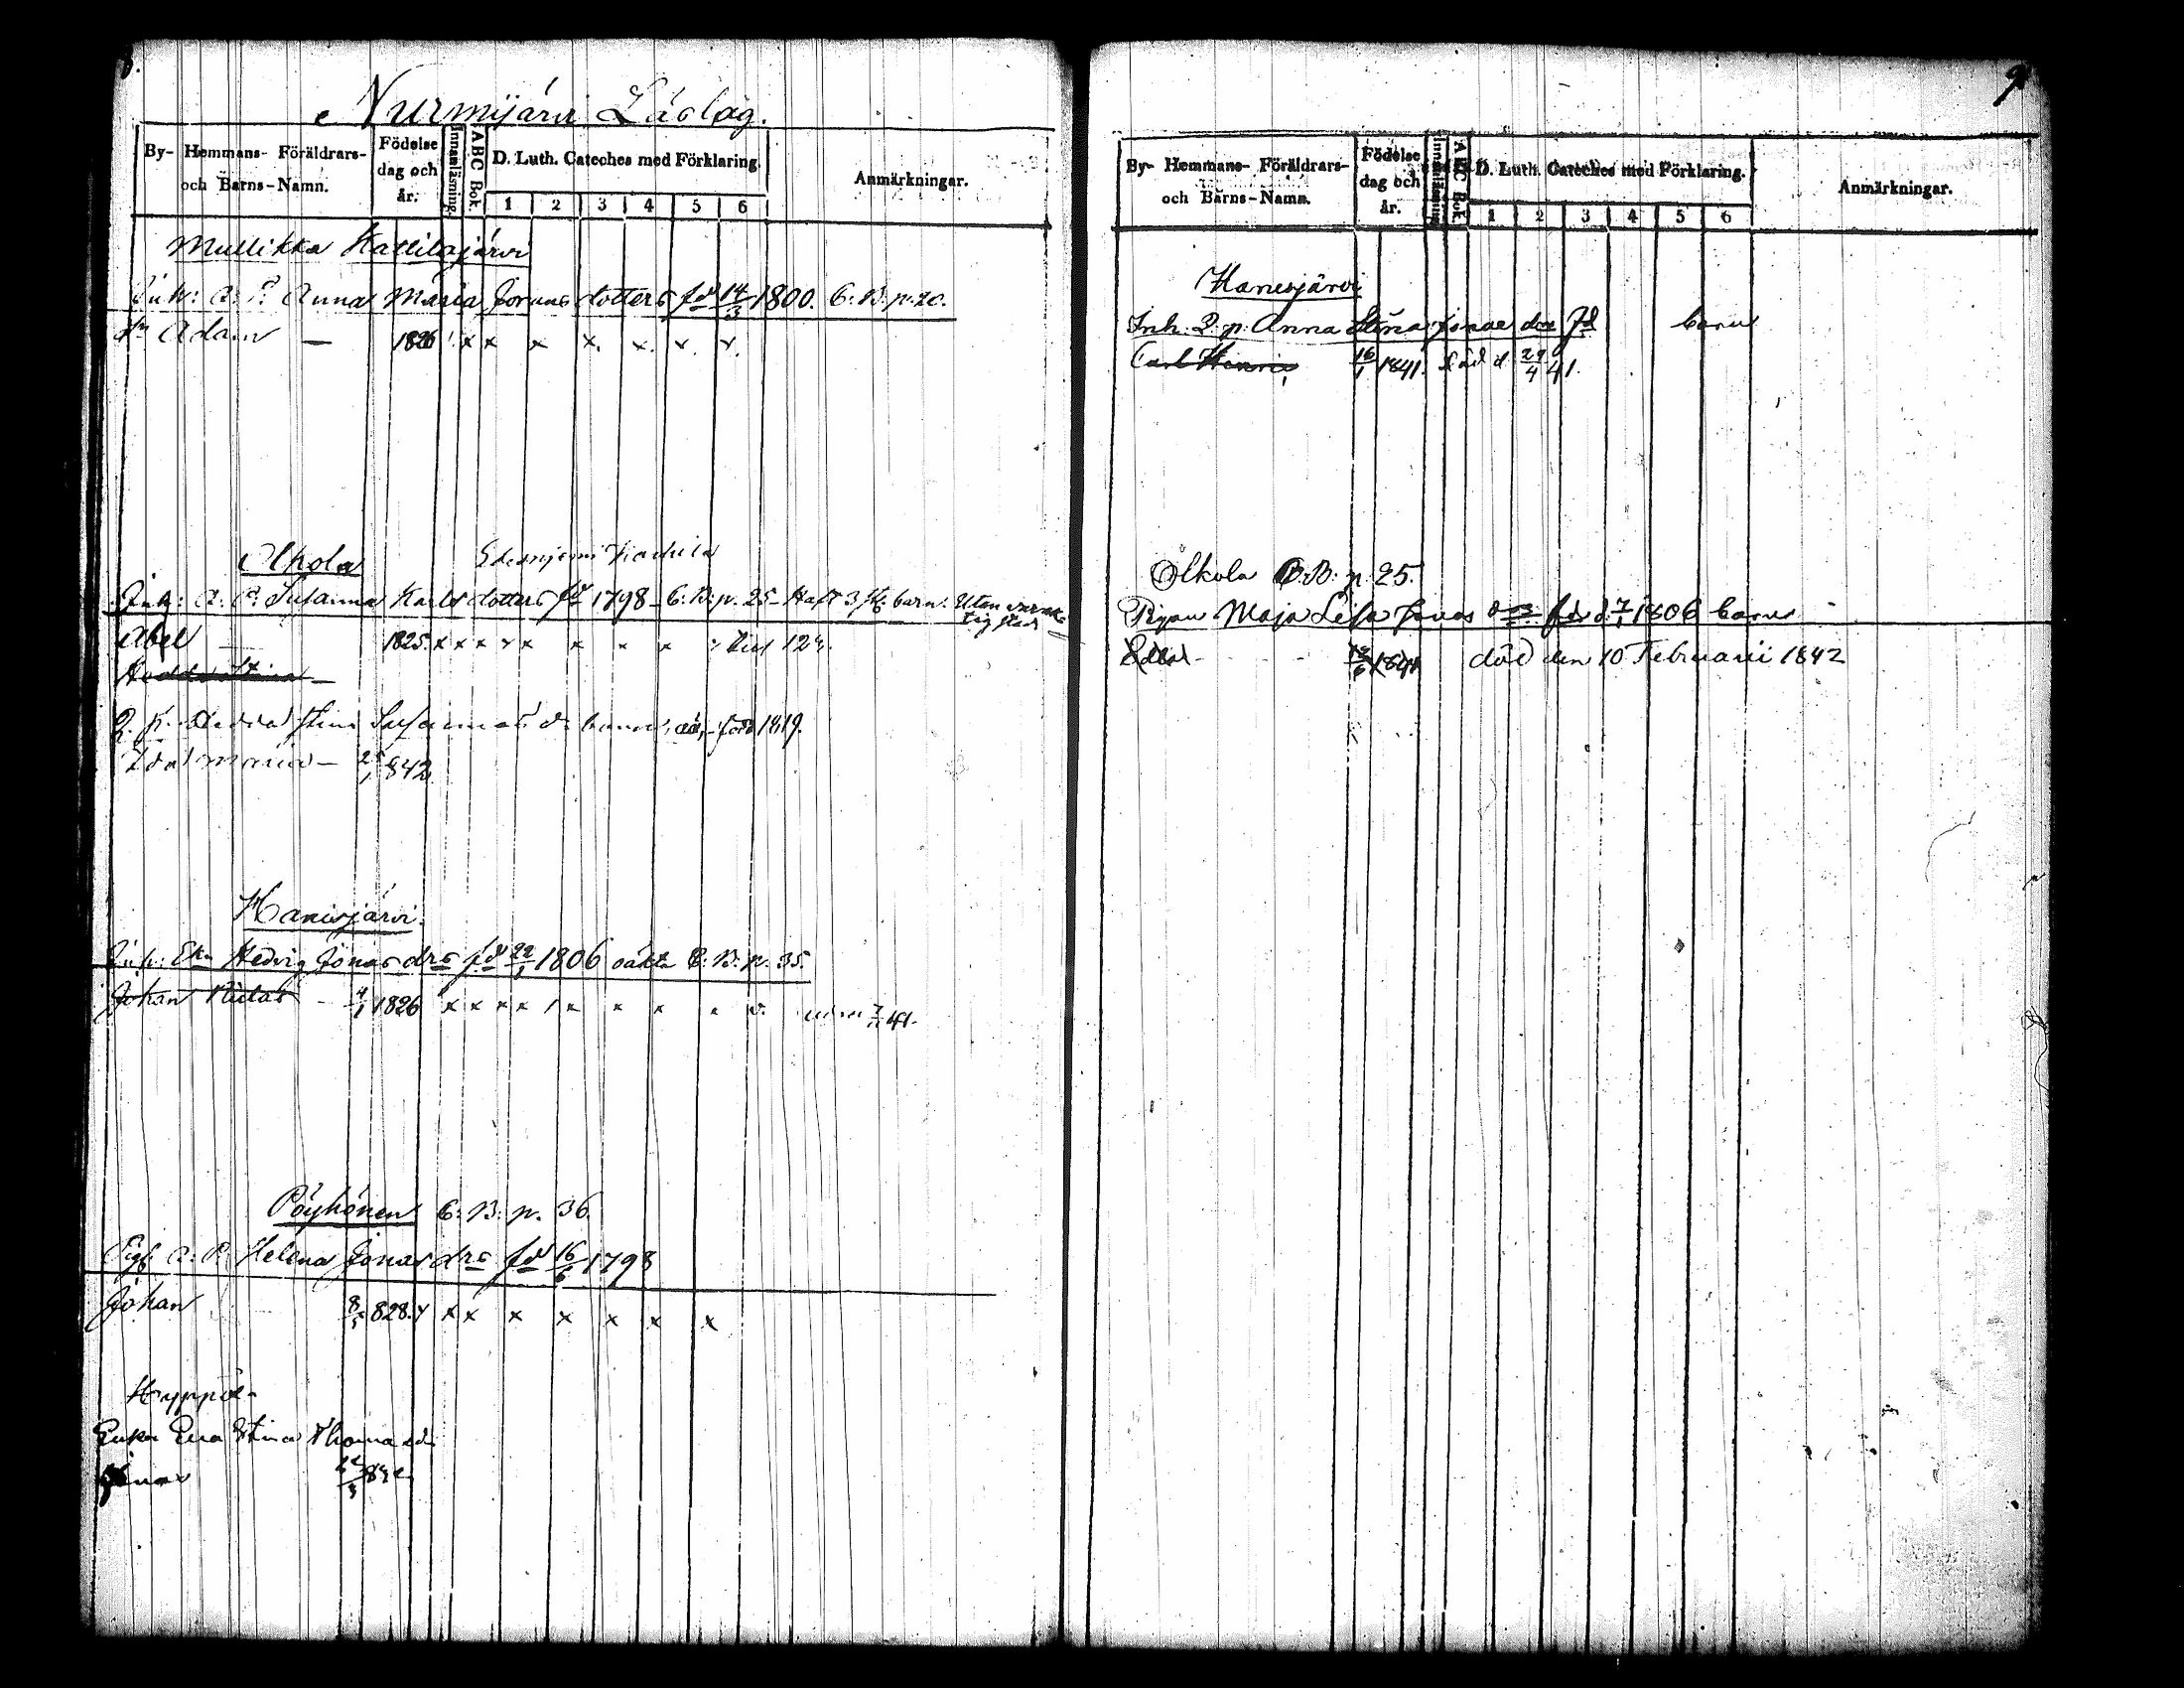 Nurmijärvi Läslag.
By- Hemmans- Föräldrars- och Barns-Namn.
Födelse dag och år.
Innanläsning.
ABC Bok.
D. Luth. Cateches med Förklaring.
1 2 3 4 5 6
Anmärkningar.
Mullikka Kattilajärvi
Inh: Q: P: Anna Maria Jonae dotters fd 14/3 1800. C: B: p. 20.
Adam — 1826 x x x x. x. x. x.
Olkola
Inh: Q: P: Susanna Karls dotters fd 1798 - C: B: p. 25 - Haft 3 barn. Utan
Abel 1825. x x x x x x x x
Hedda Stina —
Q. p. Hedda Stina Susannas d. barn, född 1819.
Ida Maria — 842
Hanisjärvi.
Inh: Eka Hedvig Jonas drs fd 22/1 1806 oäkta C: B: p. 35.
Johan Niclas - 4/1 1826 x x x x x x x
Pöyhönen C: B: p. 36.
Q: P: Helena Jonas drs fd 16/6 1798
Johan 828. x x x x x x x x
Hyppö
Enkan Eva Stina Thomae dr
Jonas
9
By- Hemmans- Föräldrars- och Barns-Namn.
Födelse dag och år.
Innanläsning
ABC Bok.
D. Luth. Cateches med Förklaring.
1 2 3 4 5 6
Anmärkningar.
Hanesjärvi
Inh. Q. p. Anna Stina Jonae drs fd barn
Carl Henric 16/1 1841. död d 29/4 41.
Olkola C.B. p. 25.
Pigan Maja Lisa Jonas fdd d. 7/1 1806 barn
1841 död den 10 Februarii 1842